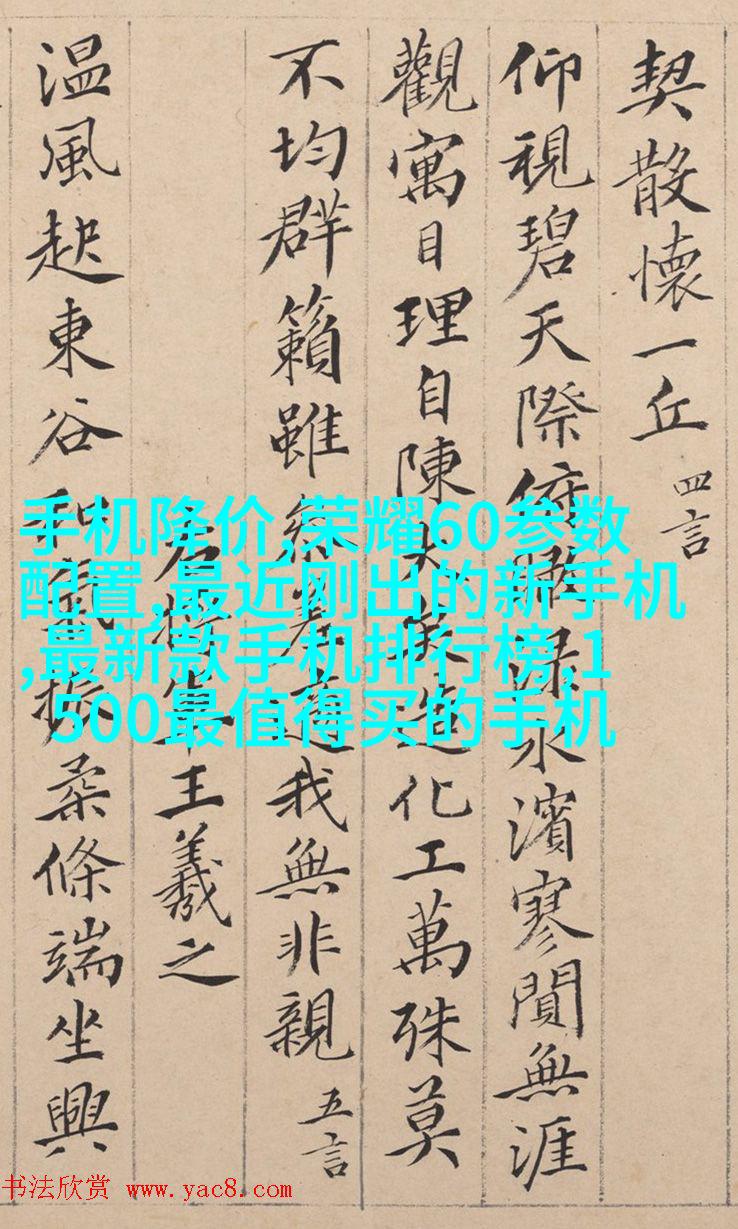 契散懷一丘 四言
仰視碧天際俯瞰綠水濱寥閬無涯
觀寓目理自陳大矣造化工萬殊莫
不均群籟雖參差適我無非親 五言
右將軍王羲之
温風起東谷和氣振柔條端坐興
手机降价,荣耀60参数
配置,最近刚出的新手机
,最新款手机排行榜,1
500最值得买的手机
书法欣赏 www.yac8.com